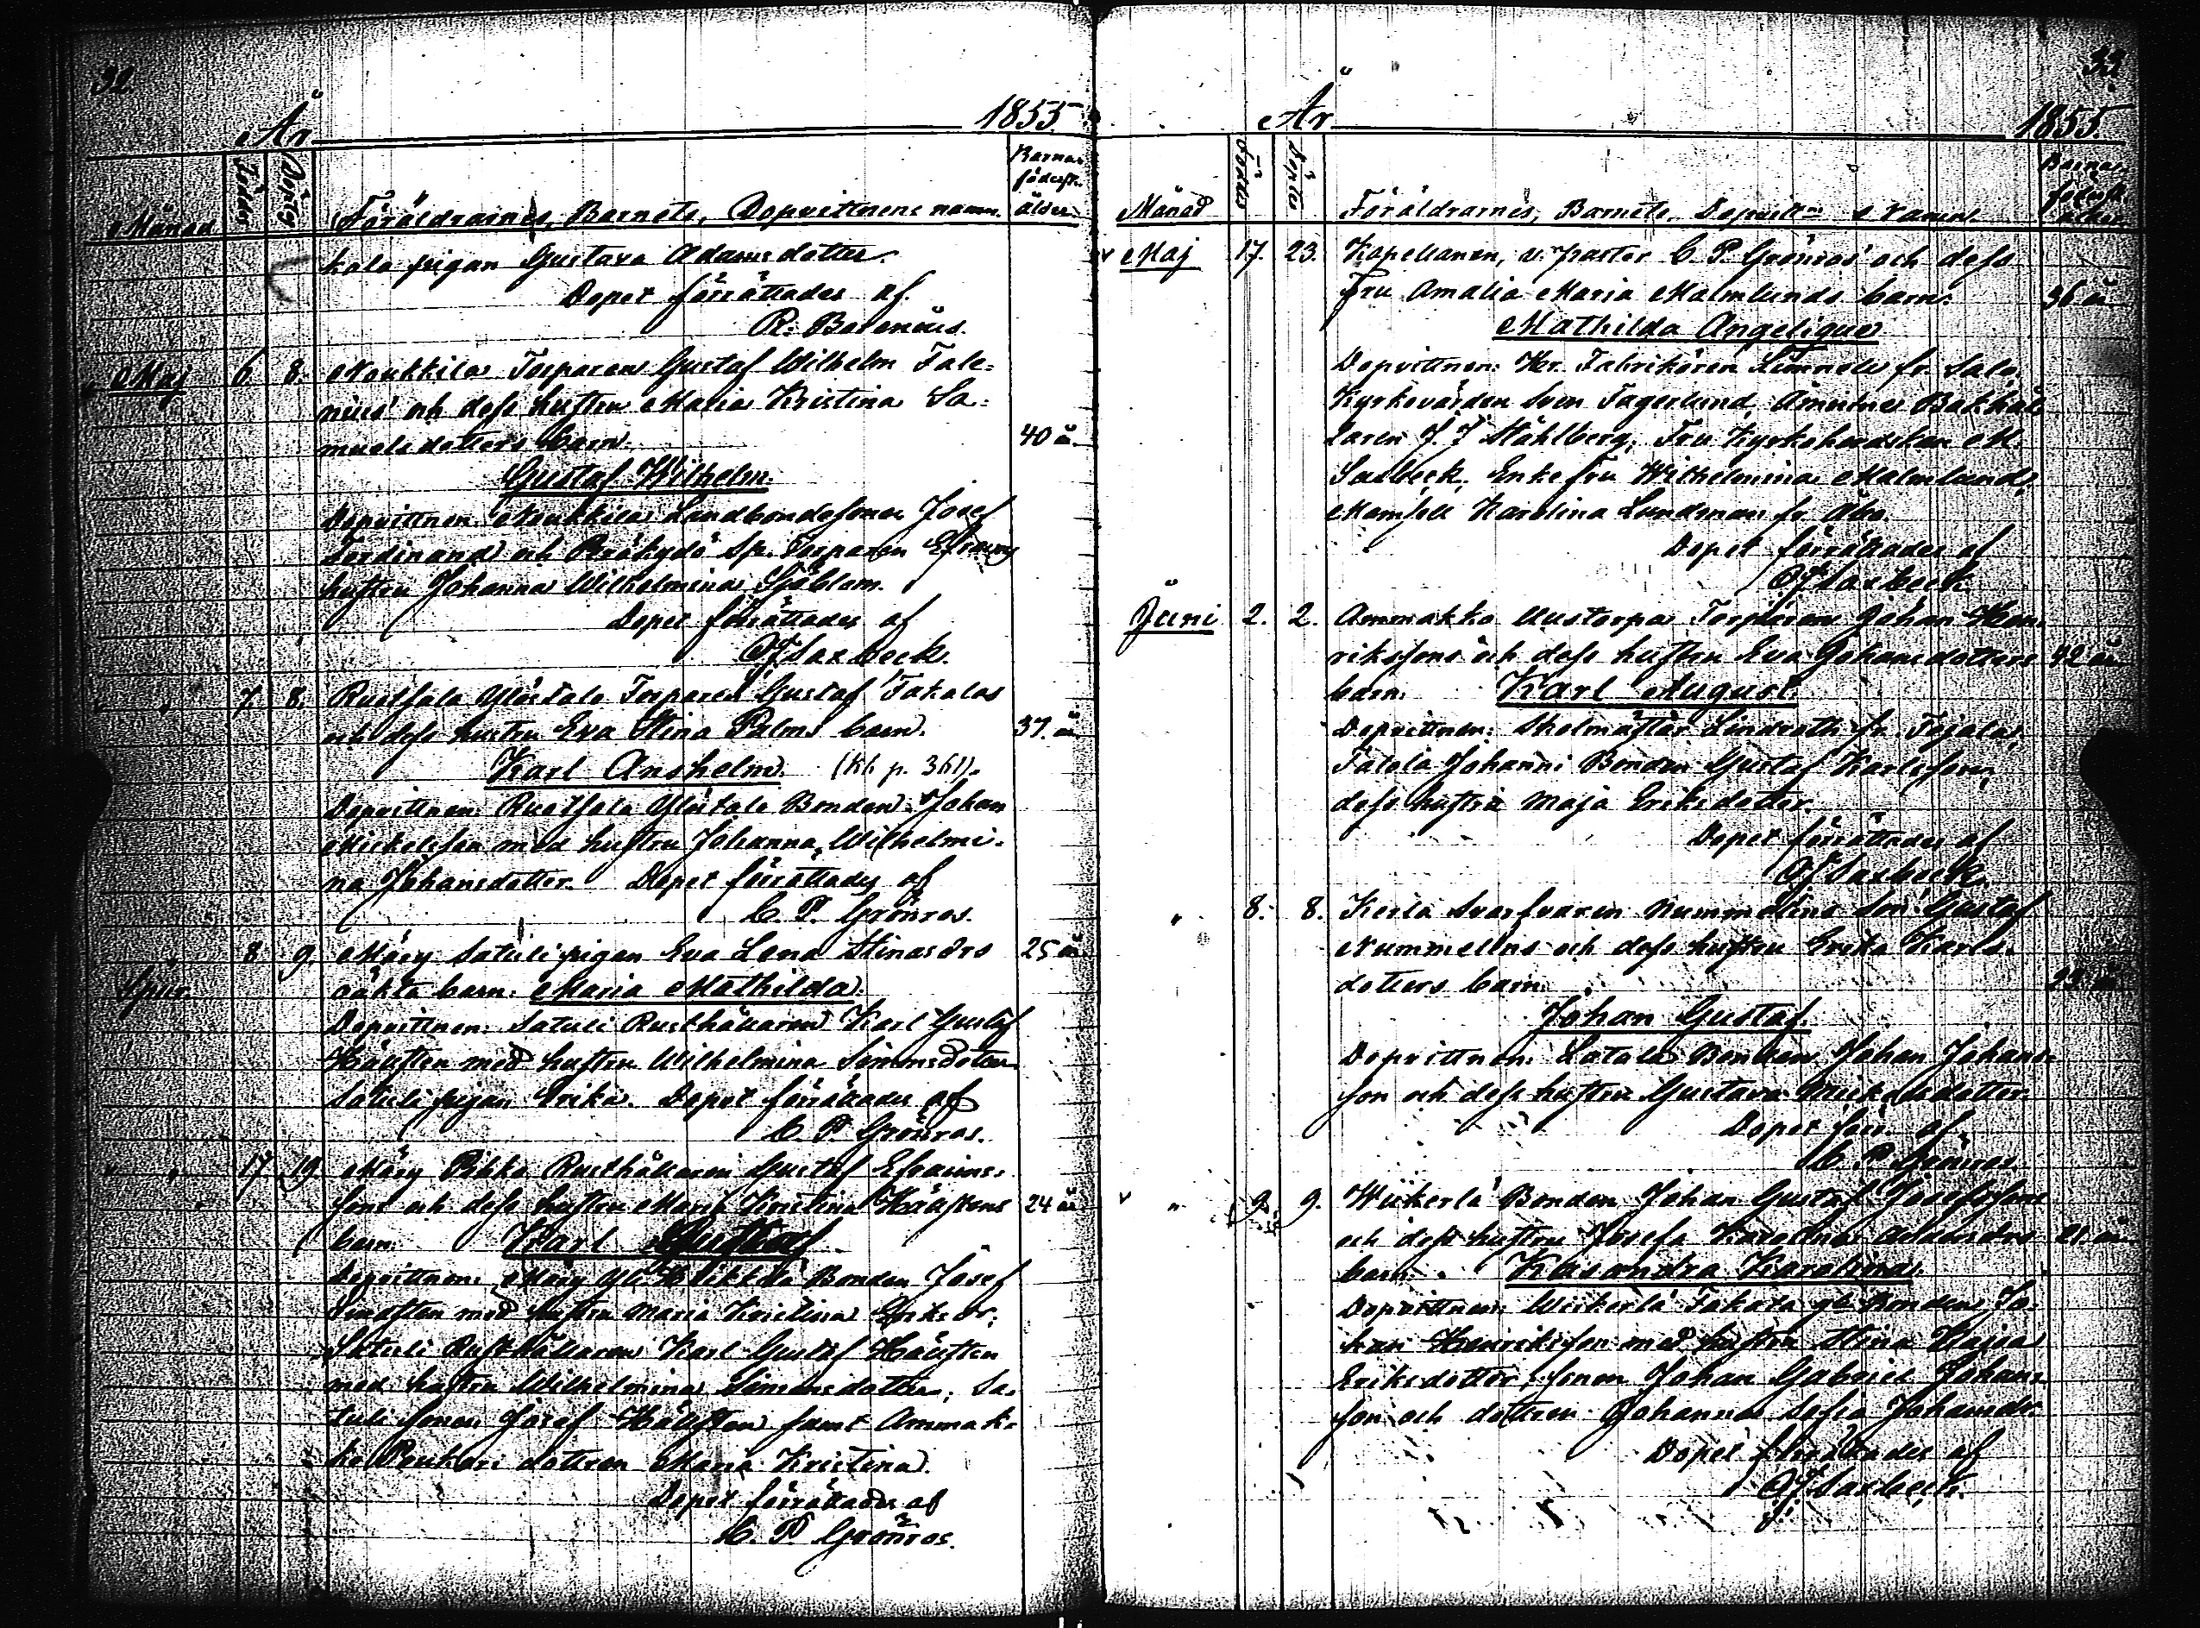 32.
År 1855
Månad Föddes Döptes Föräldrarnes, Barnets, Dopvittnens namn. Barnaföderск. ålder.
kala pigan Gustava Adamsdotter.
Dopet förrättades af.
R. Borenius.
Maj 6. 8. Naukkila Torparen Gustaf Wilhelm Tale=
nius' och dess hustru Maria Kristina Sa=
muelsdotters barn. 40 år
Gustaf Wilhelm.
Dopvittnen: Naukkila Landbondesonen Josef
Ferdinand och Torparen
hustru Johanna Wilhelmina Sjöblom.
Dopet förrättades af
Saxbeck.
" 7. 8. Torparen Gustaf Takalas
och dess hustru Eva Stina Palms barn. 37 år
Karl Anshelm. (Kb. p. 361).
Dopvittnen: Bonden Johan
Mickelsson med hustru Johanna Wilhelmi=
na Johansdotter. Dopet förrättades af
C. P. Grönros.
8 9. Märy Satuli pigan Eva Lena Stinas drs 25 år
oäkta barn. Maria Mathilda.
Dopvittnen: Satuli Rusthållaren Karl Gustaf
med hustru Wilhelmina Simonsdotter
Satuli pigan Erika. Dopet förrättades af
C. P. Grönros.
" " 17 19 Märy Rusthållaren Gustaf Efraims=
sons och dess hustru Maria Kristina 24 år
barn. Karl Gustaf
Dopvittnen: Märy Bonden Josef
med hustru Maria Kristina Eriksdr,
Satuli Rusthållaren Karl Gustaf
med hustru Wilhelmina Simonsdotter, Sa=
tuli sonen Josef samt Ammak=
ko dottren Maria Kristina.
Dopet förrättades af
C. P. Grönros.
33
År 1855.
Månad Föddes Döptes Föräldrarnes, Barnets, Dopvittn. namn.
Maj 17. 23. Kapellanen, v. pastor C. P. Grönros' och dess
Fru Amalia Maria Malmlunds barn: 36 år
Mathilda Angelique
Dopvittnen: Hr. Fabrikören fr. Salo,
Kyrkovärden Sven Fagerlund,
J. J. Ståhlberg, Fru Kyrkoherdskan M.
Saxbeck, Enkefru Wilhelmina Malmlund,
Mamsell Karolina Lundman fr. Åbo.
Dopet förrättades af
Saxbeck
Juni 2. 2. Ammakko Torparen Johan Hen=
rikssons och dess hustru Eva Johansdotters 42 år
barn. Karl August.
Dopvittnen: Skolmästar Lindroth fr. Tejala,
Johanni Bonden Gustaf Karlsson,
dess hustru Maja Eriksdotter.
Dopet förrättades af
Saxbeck.
" 8. 8. Kerla Svarfvaren Nummelins Son Gustaf
Nummelins och dess hustru Erika Karls=
dotters barn.
Johan Gustaf.
Dopvittnen: Bonden Johan Johans=
son och dess hustru Gustava Mickelsdotter.
Dopet förr. af
C. P. Grönros
" 9. 9. Wiikerlä Bonden Johan Gustaf Josefssons
och dess hustru Josefa Karolina 21 år
barn. Kasandra Karolina.
Dopvittnen: Wiikerlä Takala Bonden Jo=
han Henriksson med hustru Stina Kajsa
Eriksdotter, sonen Johan Gabriel Johans=
son och dottren Johanna Sofia Johansdr.
Dopet förrättades af
Saxbeck.